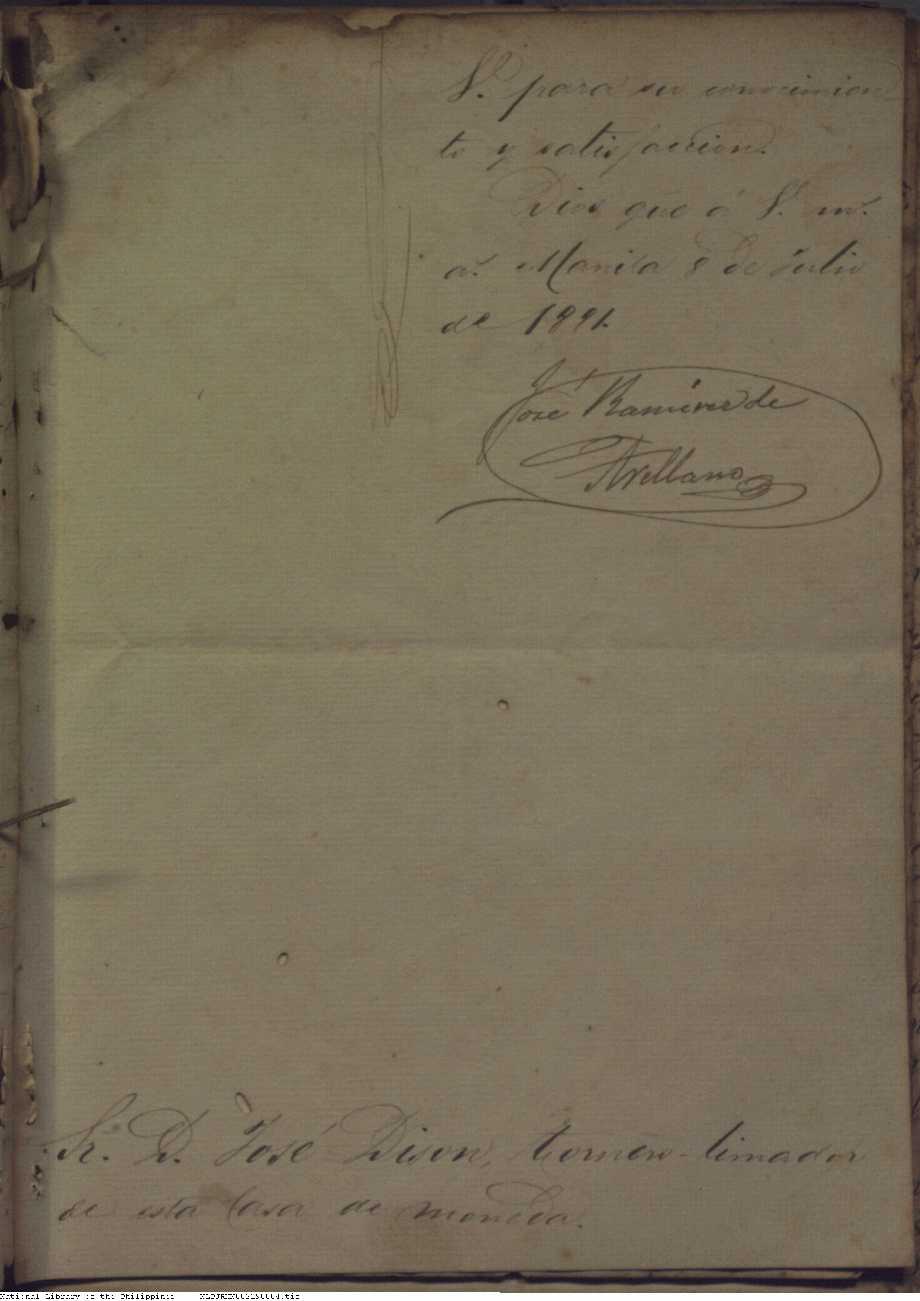 V. para su conocimien-
to y satisfaccion.
Dios gũe á V. m.s
a.s Manila 8 de Julio
de 1891.
José Ramirez de
Arellano
Sr. D. José Dison, tornero-limador
de esta Casa de moneda.
National Library of the Philippines